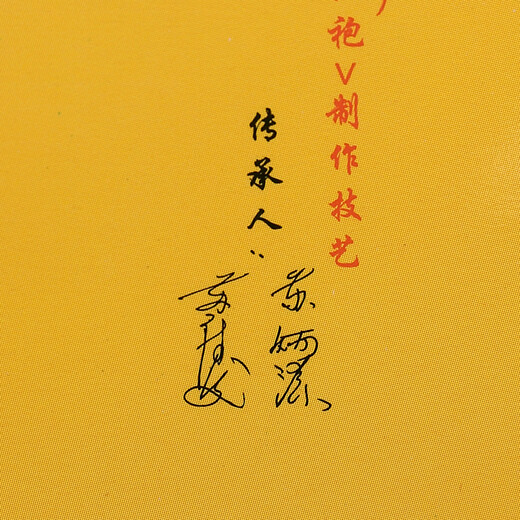 袍﹀制作技艺
传承人：
苏炳
苏